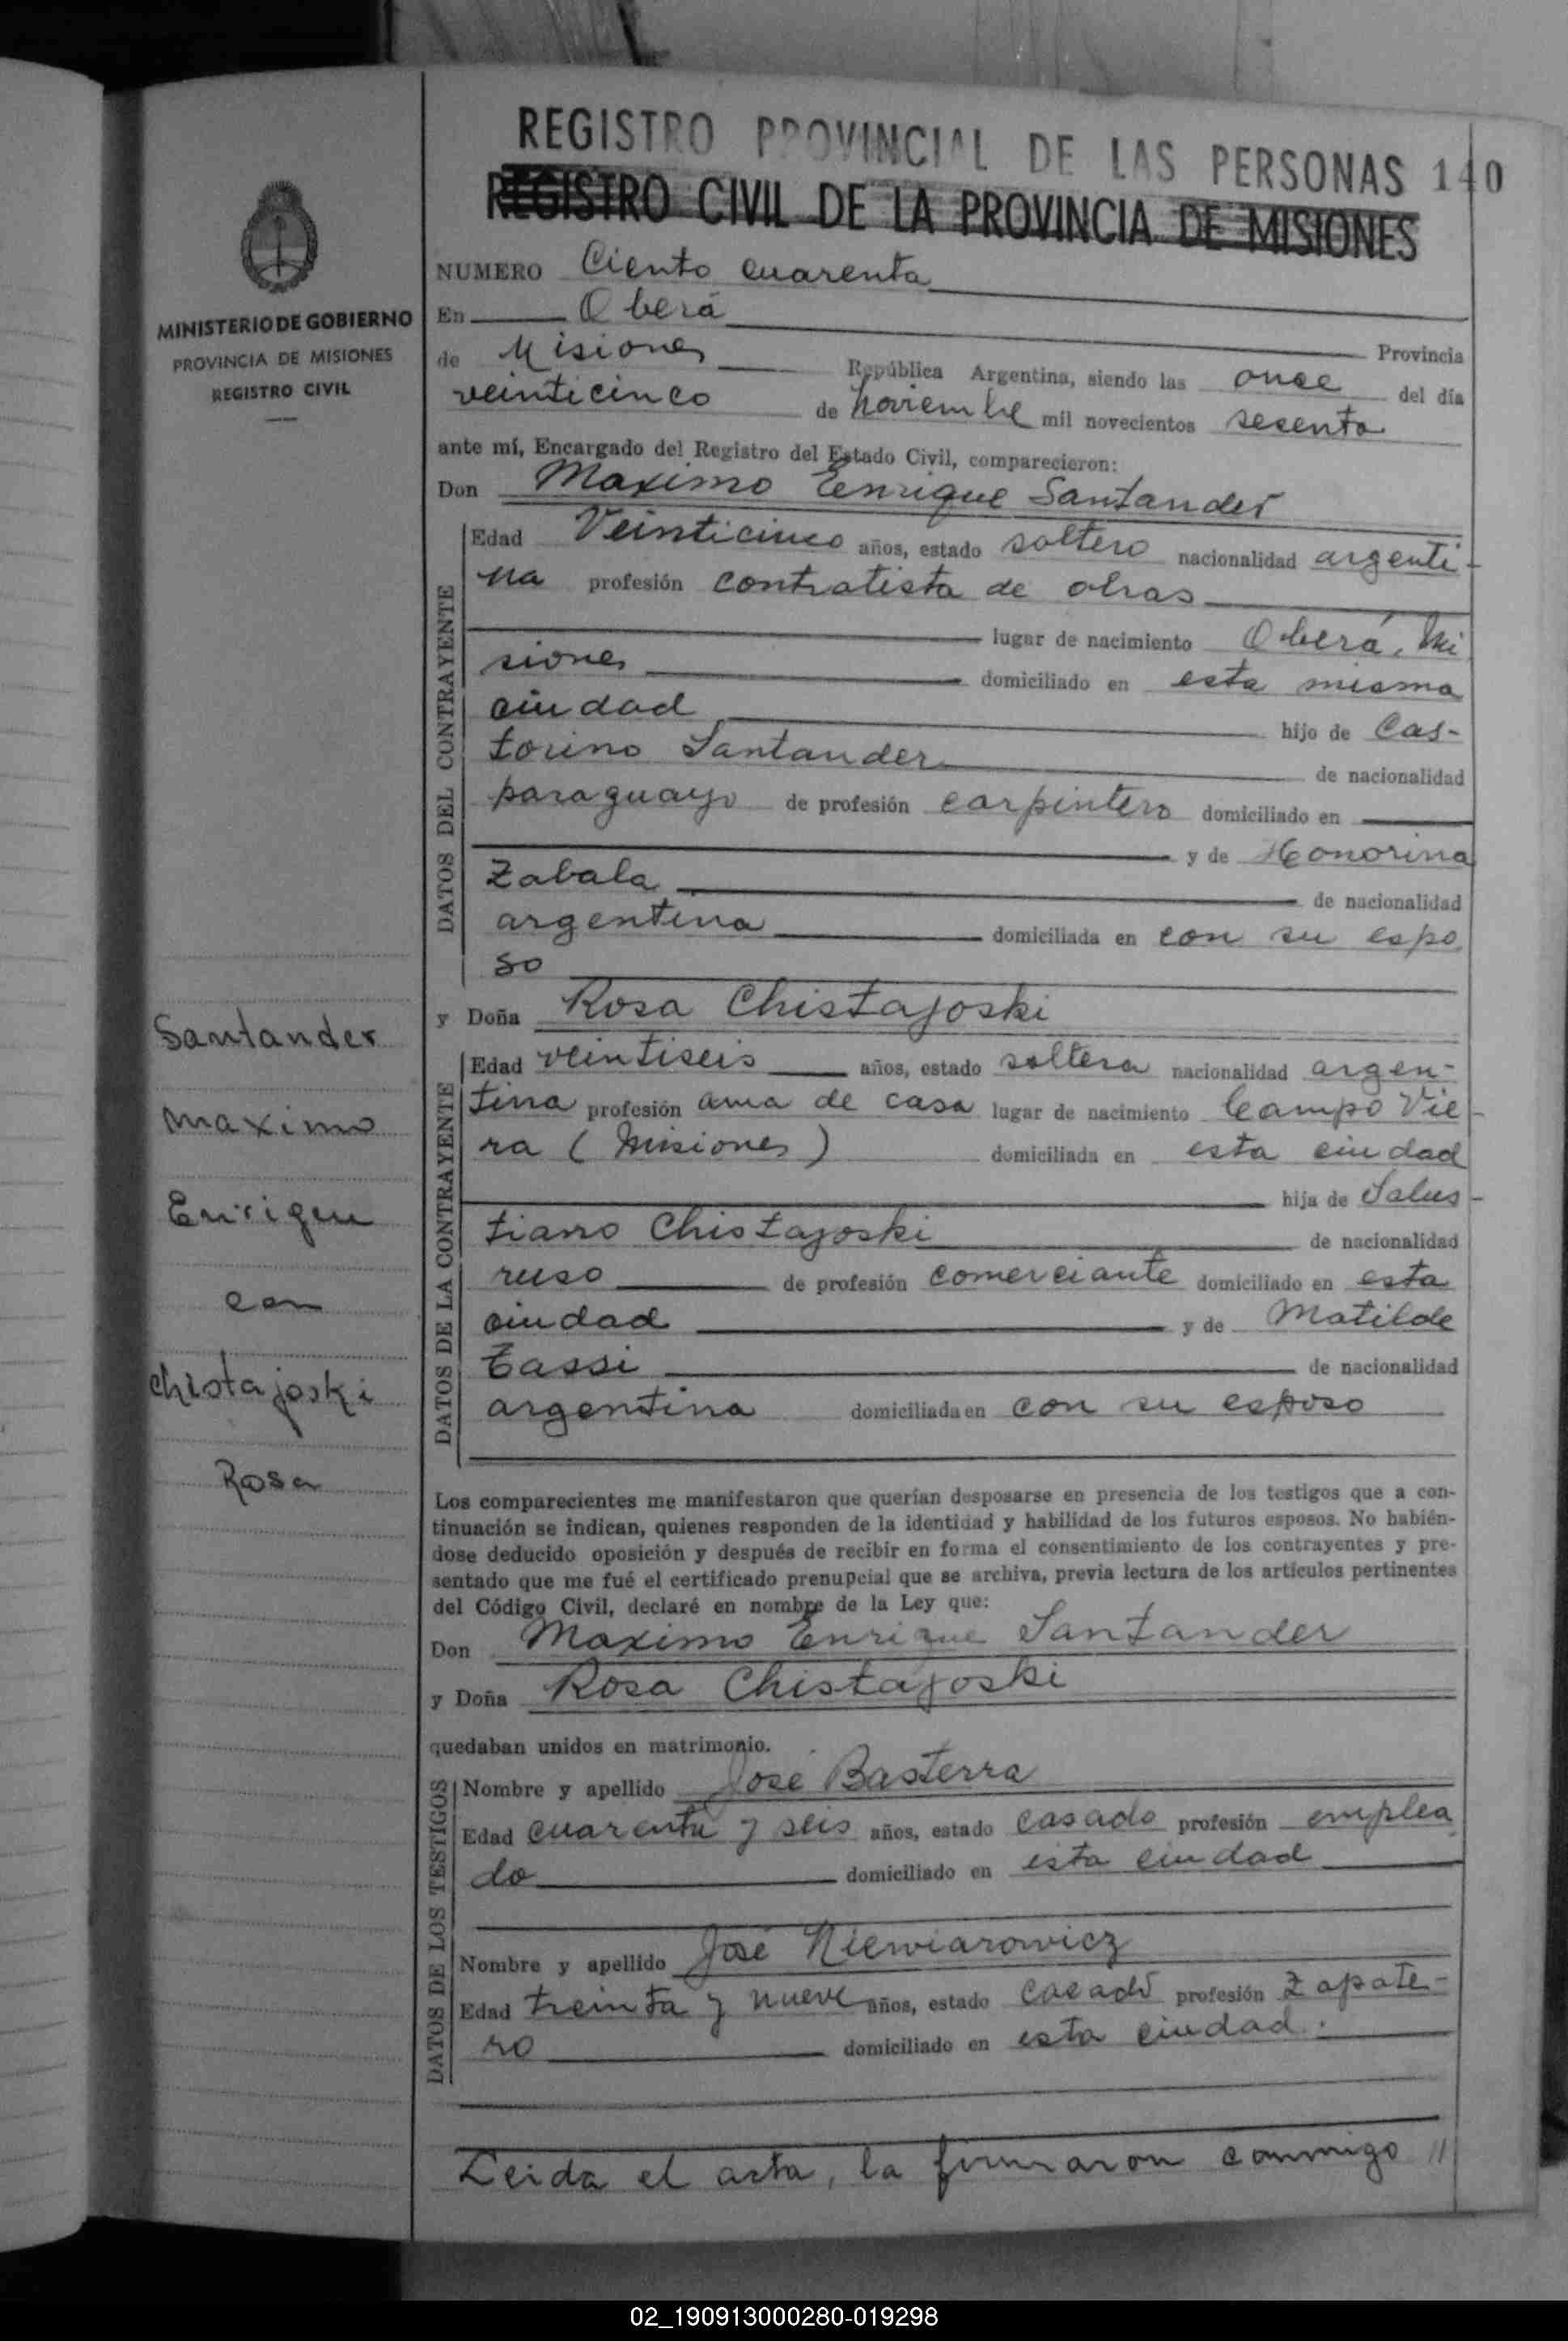 REGISTRO PROVINCIAL DE LAS PERSONAS 140
REGISTRO CIVIL DE LA PROVINCIA DE MISIONES
MINISTERIO DE GOBIERNO
PROVINCIA DE MISIONES
REGISTRO CIVIL
Santander
Maximo
Enrique
con
Chistajoski
Rosa
NUMERO Ciento cuarenta
En Oberá Provincia
de Misiones República Argentina, siendo las once del día
veinticinco de noviembre mil novecientos sesenta
ante mí, Encargado del Registro del Estado Civil, comparecieron:
Don Maximo Enrique Santander
DATOS DEL CONTRAYENTE
Edad Veinticinco años, estado soltero nacionalidad argenti-
na profesión contratista de obras
lugar de nacimiento Oberá, Mi
siones domiciliado en esta misma
ciudad hijo de Cas-
torino Santander de nacionalidad
paraguayo de profesión carpintero domiciliado en
y de Honorina
Zabala de nacionalidad
argentina domiciliada en con su espo
so
y Doña Rosa Chistajoski
DATOS DE LA CONTRAYENTE
Edad veintiseis años, estado soltera nacionalidad argen-
tina profesión ama de casa lugar de nacimiento Campo Vie-
ra (Misiones) domiciliada en esta ciudad
hija de Salus-
tiano Chistajoski de nacionalidad
ruso de profesión comerciante domiciliado en esta
ciudad y de Matilde
Tassi de nacionalidad
argentina domiciliada en con su esposo
Los comparecientes me manifestaron que querían desposarse en presencia de los testigos que a con-
tinuación se indican, quienes responden de la identidad y habilidad de los futuros esposos. No habién-
dose deducido oposición y después de recibir en forma el consentimiento de los contrayentes y pre-
sentado que me fué el certificado prenupcial que se archiva, previa lectura de los artículos pertinentes
del Código Civil, declaré en nombre de la Ley que:
Don Maximo Enrique Santander
y Doña Rosa Chistajoski
quedaban unidos en matrimonio.
DATOS DE LOS TESTIGOS
Nombre y apellido José Basterra
Edad cuarenta y seis años, estado casado profesión emplea
do domiciliado en esta ciudad
Nombre y apellido José Niewiarowicz
Edad treinta y nueve años, estado casado profesión zapate-
ro domiciliado en esta ciudad.
Leida el acta, la firmaron conmigo //
02_190913000280-019298